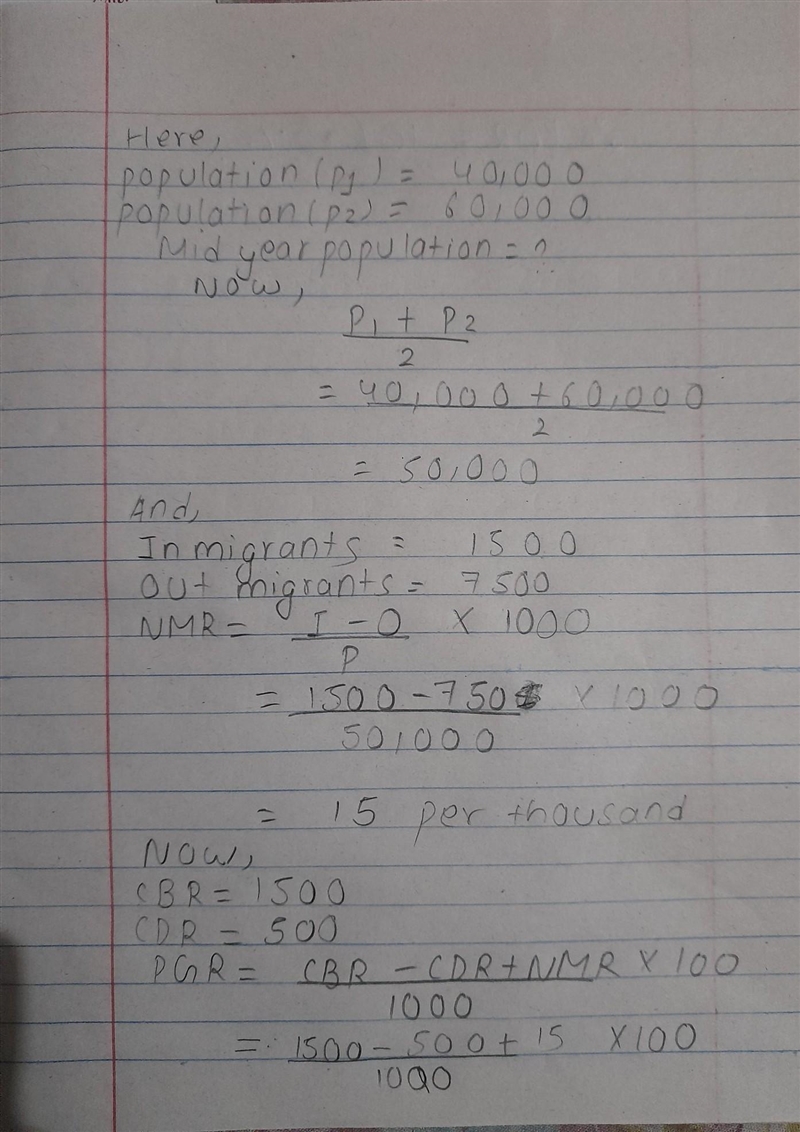 Here,
population (p1) = 40,000
population (p2) = 60,000
Mid year population = ?
Now,
P1 + P2
2
= 40,000 + 60,000
2
= 50,000
And,
In migrants = 1500
Out migrants = 7500
NMR = I - O × 1000
P
= 1500 - 750 × 1000
50,000
= 15 per thousand
Now,
CBR = 1500
CDR = 500
PGR = CBR - CDR + NMR × 100
1000
= 1500 - 500 + 15 × 100
1000